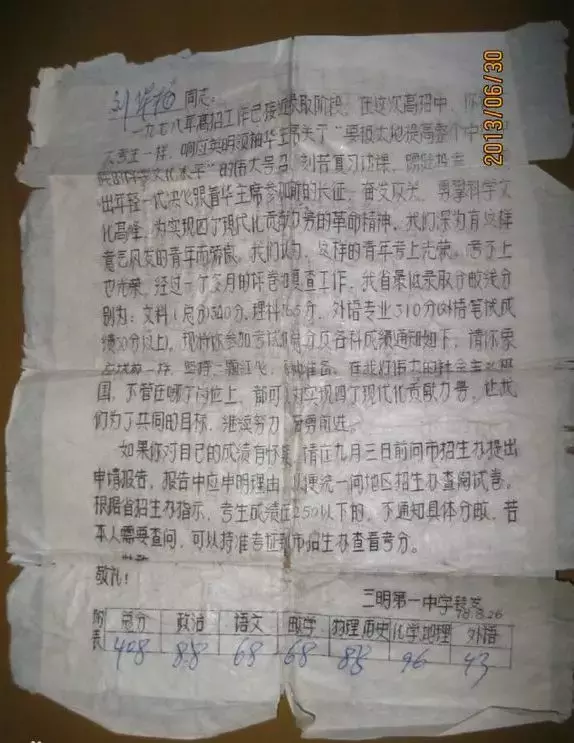 2013/06/30
同志:
一九七八年高招工作已接近录取阶段。在这次高招中,你
考生一样,响应英明领袖华主席关于“要极大地提高整个中
科学文化水平”的伟大号召,刻苦复习功课,踊跃报考
出年轻一代决心跟着华主席参加新的长征,奋发攻关,勇攀科学文
化高峰,为实现四个现代化贡献力量的革命精神。我们深为有这样
意气风发的青年而骄傲。我们认为,这样的青年考上光荣,考不上
也光荣。经过一个多月的评卷和复查工作,我省最低录取分数线分
别为:文科(总分)340分,理科 分,外语专业310分(外语笔试成
绩50分以上)。现将你参加考试 总分及各科成绩通知如下,请你象
一样,坚持一颗红心, 准备。在我们伟大的社会主义祖
国,不管在哪个岗位上,都可 为实现四个现代化贡献力量,让我
们为了共同的目标,继续努力 奋勇前进。
如果你对自己的成绩有怀疑,请在九月三日前向市招生办提出
申请报告。报告中应申明理由 以便统一向地区招生办查阅试卷。
根据省招生办指示,考生成绩在250以下的,不通知具体分数,若
本人需要查问,可以持准考证到市招生办查看考分。
敬礼!
三明第一中学
78.8.26
附表 总分 政治 语文 数学 物理,历史 化学,地理 外语
408 88 68 68 88 96 43